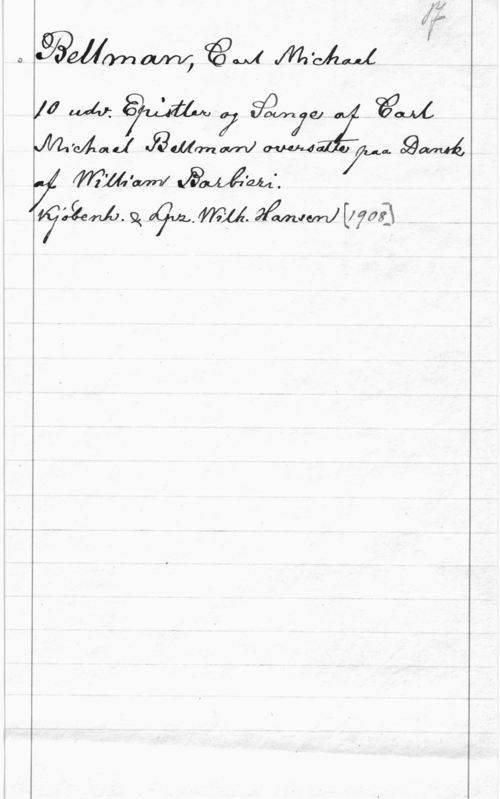 Bellman, Carl Michael
10 udv. Epistler og Sange af Carl
Michael Bellman oversatte paa Dansk
af William Barbieri.
Kjöbenh. & Lpz. Wilh. Hansen [1908]